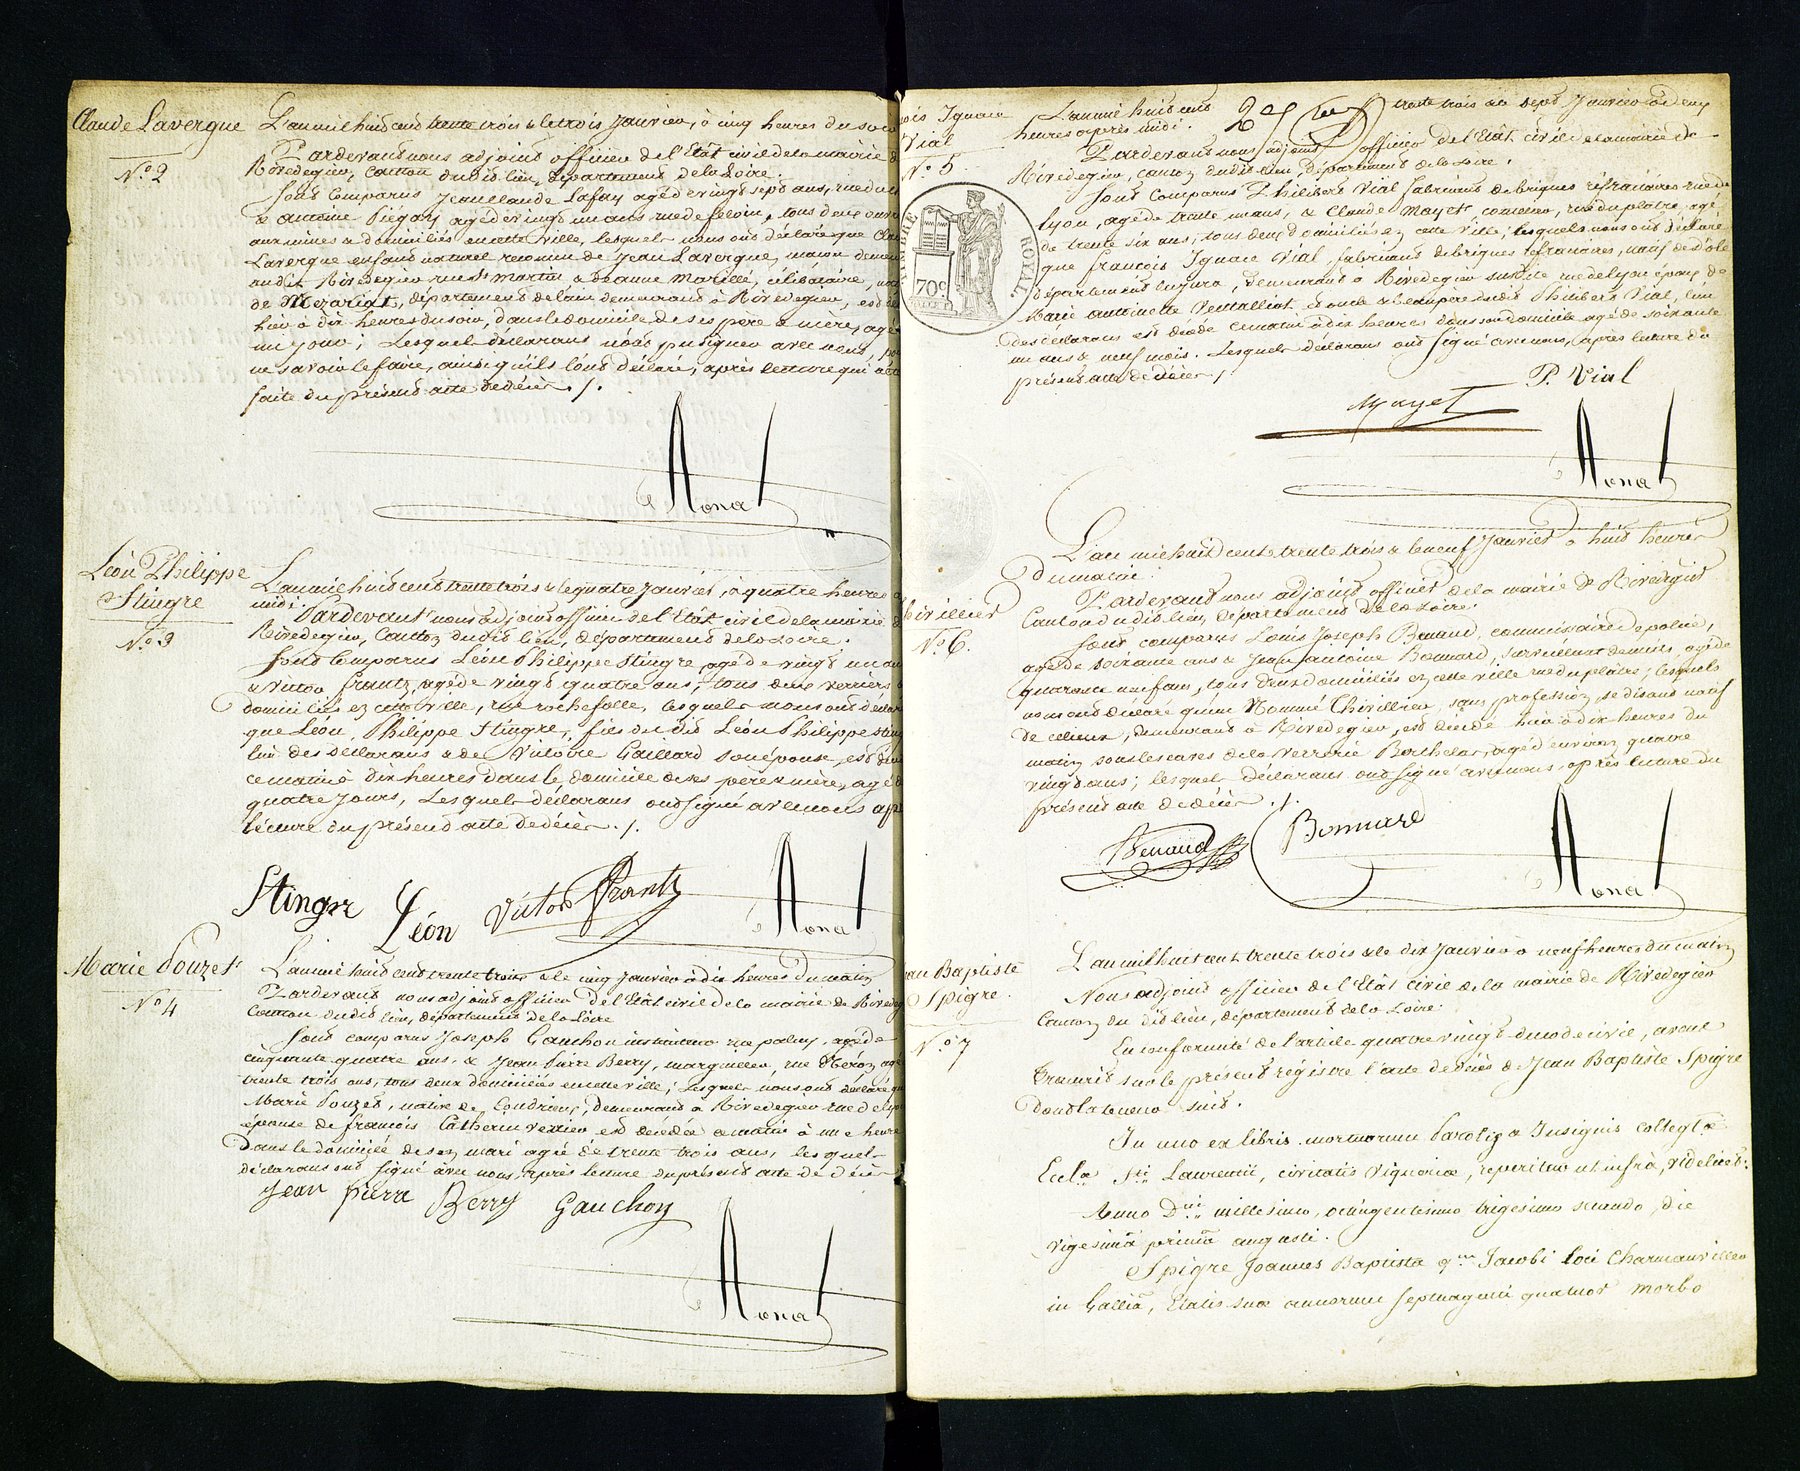 Claude Lavergne
N.o 2
L'an mil huit cent trente trois & le trois Janvier, à cinq heures du soir
Pardevant nous adjoint officier de l'Etât civil de la mairie
Rivedegier, Canton dudit lieu, département de la Loire.
Sont comparus Jean Claude Lafay agé de vingt sept ans, rue
& antoine Piégay agé de vingt un ans rue de feloin, tous deux
aux mines & domiciliés en cette ville, lesquels nous ont déclaré que
Lavergne enfant naturel reconnu de Jean Lavergne, maçon
audit Rivedegier rue St Martin & de anne Marillé, célibataire,
de Mezariat, département de l'ain demeurant à Rivedegier, est
hier à dix heures du soir, dans le domicile de ses père & mère, agé
un jour; Lesquels déclarans n'ont pu signer avec nous,
ne savoir le faire, ainsi qu'ils l'ont déclaré, après lecture qui
faite du présent acte de décès ./.
Monat
Léon Philippe
Stingre
N.o 3
L'an mil huit cent trente trois & le quatre Janvier, à quatre heures
midi.
Pardevant nous adjoint officier de l'Etât civil de la mairie
Rivedegier, Canton dudit lieu, département de la Loire.
Sont Comparus Léon Philippe Stingre, agé de vingt un
& Victor frantz, agé de vingt quatre ans, tous deux verriers
domiciliés en cette ville, rue rochefolle, lesquels nous ont
que Léon Philippe Stingre, fils du dit Léon Philippe
l'un des déclarans & de Victoire Gaillard son épouse, est
ce matin à dix heures dans le domicile de ses père & mère, agé
quatre jours, Lesquels déclarans ont signé avec nous
lecture du présent acte de décès ./.
Stingre Léon Victor Frantz
Monat
Marie Pouzet
N.o 4
L'an mil huit cent trente trois & le cinq Janvier à dix heures du matin
Pardevant nous adjoint officier de l'Etât civil de la mairie de
Canton dudit lieu, département de la Loire
Sont comparus Joseph Gauchon rue paluy, agé de
cinquante quatre ans, & Jean Pierre Berry, marguiller, rue Néron,
trente trois ans, tous deux domiciliés en cette ville; Lesquels nous ont déclaré
Marie Pouzet, native de Condrieux, demeurant à Rivedegier rue de
épouse de françois Catherin verrier est décédée ce matin à une heure
Dans le domicile de son mari agée de trente trois ans, lesquels
déclarans ont signé avec nous, après lecture du présent acte de décès
Jean pierre Berry Gauchon
Monat
Ignace
Vial
N.o 5
L'an mil huit cent trente trois & le sept Janvier à deux
heures après midi.
Pardevant nous adjoint officier de l'Etât civil de la mairie de
Rivedegier, canton dudit lieu, département de la Loire.
Sont comparus Philibert Vial fabricant de briques réfractaires rue de
lyon, agé de trente un ans, & Claude Mayet, rue du plâtre, agé
de trente six ans, tous deux domiciliés en cette ville; lesquels nous ont déclaré
que françois Ignace Vial, fabricant de briques réfractaires, natif de dole
département du jura, demeurant à Rivedegier susdite rue de lyon époux de
Marie antoinette, & oncle & beaupère dudit Philibert Vial, l'un
des déclarans est décédé ce matin à dix heures dans son domicile agé de soixante
un ans & neuf mois. Lesquels déclarans ont signé avec nous, après lecture du
présent acte de décès /.
TIMBRE ROYAL
70c
P. Vial
Mayet
Monat
L'an mil huit cent trente trois & le neuf Janvier à huit heures
du matin.
Pardevant nous adjoint officier de la mairie de Rivedegier
Canton dudit lieu, département de la Loire.
N.o 6.
Sont comparus Louis Joseph Benaud, commissaire de police,
agé de soixante ans & Jean antoine Bonnard, surveillant de nuit, agé de
quarante neuf ans, tous deux domiciliés en cette ville rue du plâtre; lesquels
nous ont déclaré qu'un Nommé Chivillier, sans profession, se disant natif
de, demeurant à Rivedegier, est décédé hier à dix heures du
matin sous les caves de la verrerie Berthelas, agé d'environ quatre
vingt ans; lesquels déclarans ont signé avec nous, après lecture du
présent acte de décès ./.
Benaud Bonnard
Monat
Baptiste
Spigre.
N.o 7
L'an mil huit cent trente trois & le dix Janvier à neuf heures du matin
Nous adjoint officier de l'Etât civil de la mairie de Rivedegier
Canton du dit lieu, département de la Loire.
En conformité de l'article quatre vingt du code civil, avons
transcrit sur le présent régistre l'acte de décès de Jean Baptiste Spigre
dont la teneur suit.
In uno ex libris mortuorum Parochiæ Insignis collegtæ
Eccla Sti Laurentii, civitatis Viqueriæ, reperitur ut infrà, videlicet:
Anno Dni millesimo, octingentesimo trigesimo secundo, die
vigesimâ primâ augusti.
Spigre Joannes Baptista qm Jacobi loci Charmauvillen
in Galliâ, Etatis suæ annorum septuaginti quatuor morbo